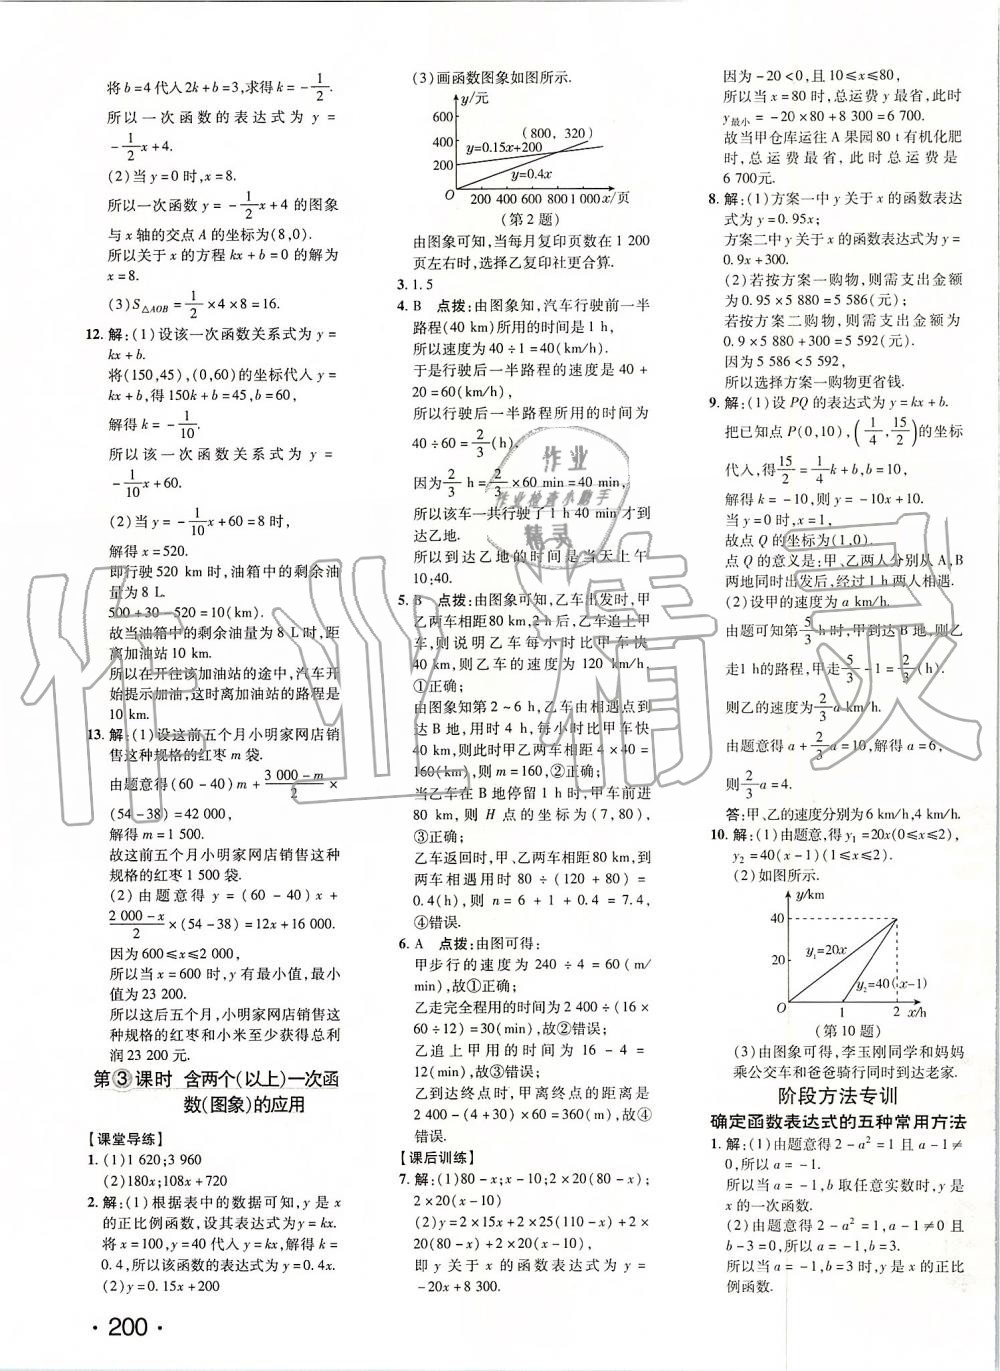 将b=4代入2k+b=3,求得k=-1/2.
所以一次函数的表达式为y=
-1/2x+4.
(2)当y=0时,x=8.
所以一次函数y=-1/2x+4的图象
与x轴的交点A的坐标为(8,0).
所以关于x的方程kx+b=0的解为
x=8.
(3)S△AOB=1/2×4×8=16.
12.解:(1)设该一次函数关系式为y=
kx+b.
将(150,45),(0,60)的坐标代入y=
kx+b,得150k+b=45,b=60,
解得k=-1/10.
所以该一次函数关系式为y=
-1/10x+60.
(2)当y=-1/10x+60=8时,
解得x=520.
即行驶520 km时,油箱中的剩余油
量为8 L.
500+30-520=10(km).
故当油箱中的剩余油量为8 L时,距
离加油站10 km.
所以在开往该加油站的途中,汽车开
始提示加油,这时离加油站的路程是
10 km.
13.解:(1)设这前五个月小明家网店销
售这种规格的红枣m袋.
由题意得(60-40)m+(3 000-m)/2×
(54-38)=42 000,
解得m=1 500.
故这前五个月小明家网店销售这种
规格的红枣1 500袋.
(2)由题意得y=(60-40)x+
(2 000-x)/2×(54-38)=12x+16 000.
因为600≤x≤2 000,
所以当x=600时,y有最小值,最小
值为23 200.
所以这后五个月,小明家网店销售这
种规格的红枣和小米至少获得总利
润23 200元.
第③课时 含两个(以上)一次函
数(图象)的应用
【课堂导练】
1.(1)1 620;3 960
(2)180x;108x+720
2.解:(1)根据表中的数据可知,y是x
的正比例函数,设其表达式为y=kx.
将x=100,y=40代入y=kx,解得k=
0.4,所以该函数的表达式为y=0.4x.
(2)y=0.15x+200
·200·
(3)画函数图象如图所示.
y/元
600
(800,320)
400
y=0.15x+200
200
y=0.4x
O 200 400 600 800 1 000 x/页
(第2题)
由图象可知,当每月复印页数在1 200
页左右时,选择乙复印社更合算.
3.1.5
4.B 点拨:由图象知,汽车行驶前一半
路程(40 km)所用的时间是1 h,
所以速度为40÷1=40(km/h).
于是行驶后一半路程的速度是40+
20=60(km/h),
所以行驶后一半路程所用的时间为
40÷60=2/3(h).
因为2/3 h=2/3×60 min=40 min,
所以该车一共行驶了1 h 40 min才到
达乙地.
所以到达乙地的时间是当天上午
10:40.
5.B 点拨:由图象可知,乙车出发时,甲
乙两车相距80 km,2 h后,乙车追上甲
车,则说明乙车每小时比甲车快
40 km,则乙车的速度为120 km/h,
①正确;
由图象知第2~6 h,乙车由相遇点到
达B地,用时4 h,每小时比甲车快
40 km,则此时甲乙两车相距4×40=
160(km),则m=160,②正确;
当乙车在B地停留1 h时,甲车前进
80 km,则H点的坐标为(7,80),
③正确;
乙车返回时,甲、乙两车相距80 km,到
两车相遇用时80÷(120+80)=
0.4(h),则n=6+1+0.4=7.4,
④错误.
6.A 点拨:由图可得:
甲步行的速度为240÷4=60(m/
min),故①正确;
乙走完全程用的时间为2 400÷(16×
60÷12)=30(min),故②错误;
乙追上甲用的时间为16-4=
12(min),故③错误;
乙到达终点时,甲离终点的距离是
2 400-(4+30)×60=360(m),故④
错误.
【课后训练】
7.解:(1)80-x;x-10;2×20(80-x);
2×20(x-10)
(2)y=2×15x+2×25(110-x)+2×
20(80-x)+2×20(x-10),
即y关于x的函数表达式为y=
-20x+8 300.
因为-20<0,且10≤x≤80,
所以当x=80时,总运费y最省,此时
y最小=-20×80+8 300=6 700.
故当甲仓库运往A果园80 t有机化肥
时,总运费最省,此时总运费是
6 700元.
8.解:(1)方案一中y关于x的函数表达
式为y=0.95x;
方案二中y关于x的函数表达式为y=
0.9x+300.
(2)若按方案一购物,则需支出金额
为0.95×5 880=5 586(元);
若按方案二购物,则需支出金额为
0.9×5 880+300=5 592(元).
因为5 586<5 592,
所以选择方案一购物更省钱.
9.解:(1)设PQ的表达式为y=kx+b.
把已知点P(0,10),(1/4,15/2)的坐标
代入,得15/2=1/4k+b,b=10,
解得k=-10,则y=-10x+10.
当y=0时,x=1,
故点Q的坐标为(1,0).
点Q的意义是:甲、乙两人分别从A,B
两地同时出发后,经过1 h两人相遇.
(2)设甲的速度为a km/h.
由题可知第5/3 h时,甲到达B地,则乙
走1 h的路程,甲走5/3-1=2/3(h).
则乙的速度为2/3a km/h.
由题意得a+2/3a=10,解得a=6,
则2/3a=4.
答:甲、乙的速度分别为6 km/h,4 km/h.
10.解:(1)由题意,得y1=20x(0≤x≤2),
y2=40(x-1)(1≤x≤2).
(2)如图所示.
y/km
40
y1=20x
20
y2=40(x-1)
O 1 2 x/h
(第10题)
(3)由图象可得,李玉刚同学和妈妈
乘公交车和爸爸骑行同时到达老家.
阶段方法专训
确定函数表达式的五种常用方法
1.解:(1)由题意得2-a²=1且a-1≠
0,所以a=-1.
所以当a=-1,b取任意实数时,y是
x的一次函数.
(2)由题意得2-a²=1,a-1≠0且
b-3=0,所以a=-1,b=3.
所以当a=-1,b=3时,y是x的正比
例函数.
作业
作业检查小助手
精灵
作业精灵